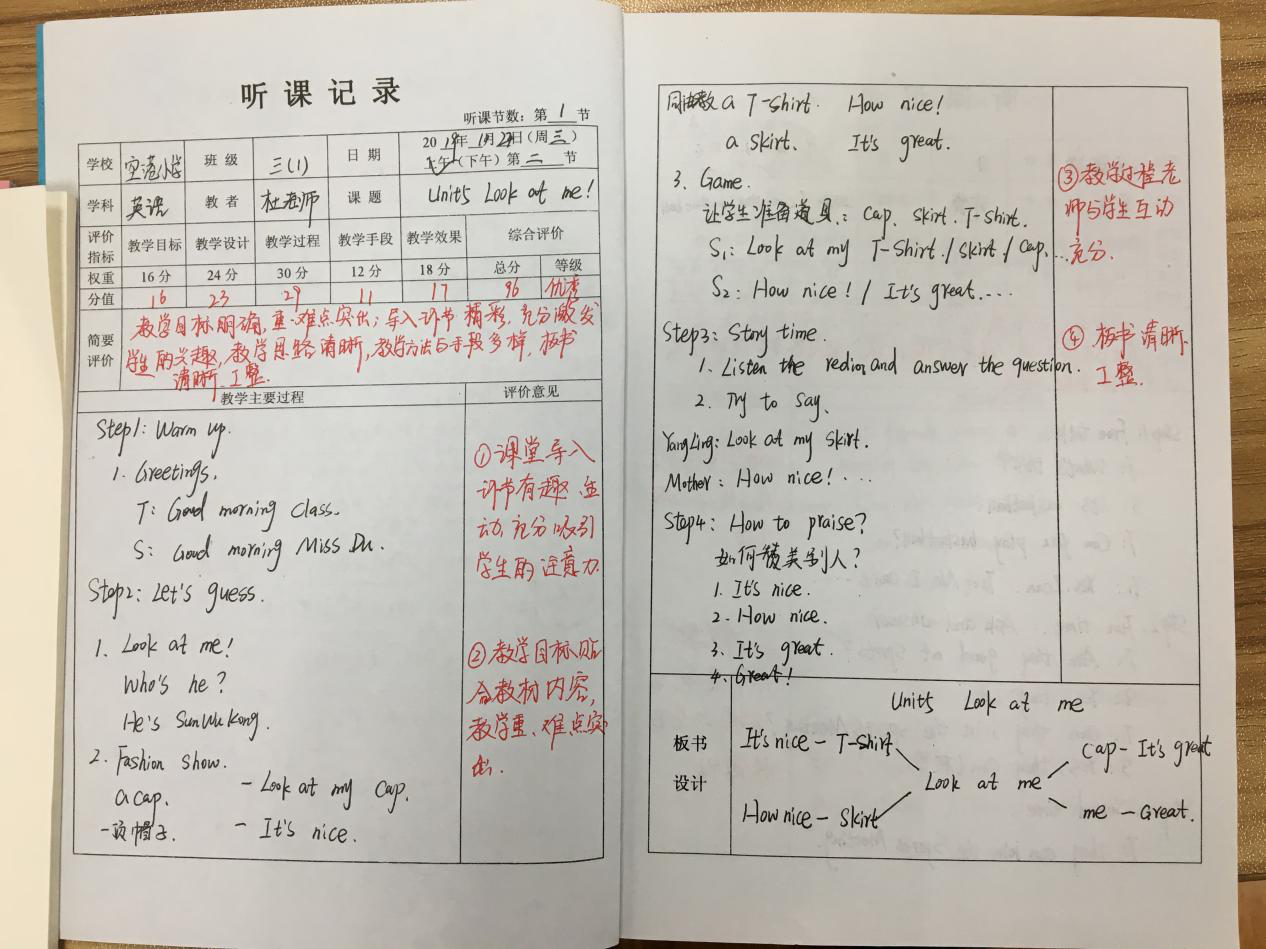 听课记录
听课节数：第 1 节
学校 空港小学 班级 三(1) 日期 2019年10月23日(周三)
上午(下午)第二节
学科 英语 教者 杜老师 课题 Unit5 Look at me!
评价指标 教学目标 教学设计 教学过程 教学手段 教学效果 综合评价
权重 16分 24分 30分 12分 18分 总分 等级
分值 16 23 29 11 17 96 优秀
简要评价
教学目标明确,重、难点突出;导入环节精彩,充分激发
学生的兴趣,教学思路清晰,教学方法与手段多样,板书
清晰、工整.
教学主要过程 评价意见
Step1: Warm up.
1. Greetings.
T: Good morning class.
S: Good morning Miss Du.
Step2: Let's guess.
1. Look at me!
Who's he?
He's SunWuKong.
2. Fashion show.
a cap. - Look at my cap.
一顶帽子. - It's nice.
①课堂导入
环节有趣、生
动,充分吸引
学生的注意力.
②教学目标贴
合教材内容,
教学重、难点突
出.
同法教 a T-shirt. How nice!
a skirt. It's great.
3. Game.
让学生准备道具: cap. skirt. T-shirt.
S1: Look at my T-shirt./skirt/cap....
S2: How nice! / It's great....
Step3: Story time.
1. Listen the redio, and answer the question.
2. Try to say.
YangLing: Look at my skirt.
Mother: How nice!...
Step4: How to praise?
如何赞美别人?
1. It's nice.
2. How nice.
3. It's great.
4. Great!
③教学过程老
师与学生互动
充分.
④板书清晰.
工整.
板书设计
Unit5 Look at me
It's nice - T-shirt
Cap - It's great
Look at me
How nice - Skirt
me - Great.